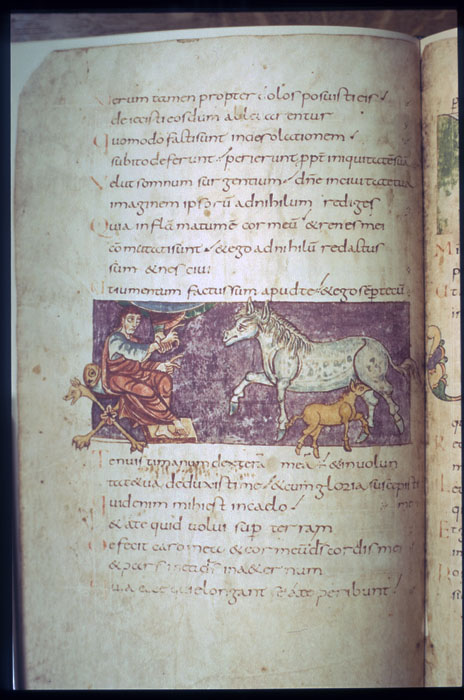 Uerum tamen propter dolos posuisti eis
deiecisti eos dum alleuarentur
Quomodo facti sunt in desolationem
subito defecerunt perierunt ꝓpt iniquitatē suā
Velut somnum surgentium dn̄e in ciuitate tua
imaginem ipsorū ad nihilum rediges
Quia inflāmatum ē cor meū & renes mei
commutati sunt & ego ad nihilū redactus
sum & nesciui
Ut iumentum factus sum apud te & ego semper tecū
Tenuisti manum dexterā meā & in uolun
tate tua deduxisti me & cum gloria suscepisti
me
Quid enim mihi est in caelo
& a te quid uolui sup terram
Defecit caro mea & cor meū ds̄ cordis mei
& pars mea ds̄ in aeternum
Quia ecce qui elongant se a te peribunt